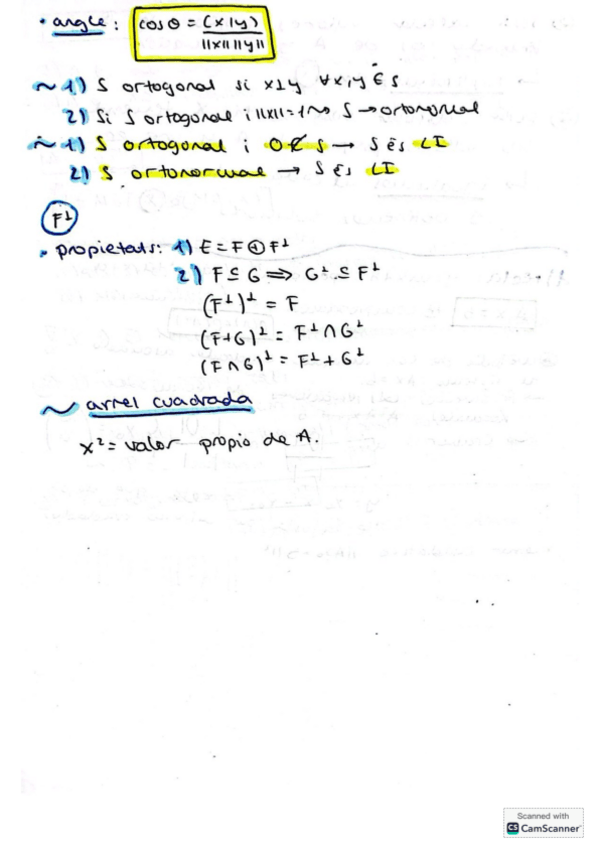 • angle: cos θ = (x|y) / ||x|| ||y||
~ 1) S ortogonal si x⊥y ∀x,y ∈ S
2) Si S ortogonal i ||x||=1 ~> S → ortonormal
~ 1) S ortogonal i 0 ∉ S → S és LI
2) S ortonormal → S és LI
F⊥
• propietats: 1) E = F ⊕ F⊥
2) F ⊆ G ⟹ G⊥ ⊆ F⊥
(F⊥)⊥ = F
(F+G)⊥ = F⊥ ∩ G⊥
(F ∩ G)⊥ = F⊥ + G⊥
~ arrel cuadrada
x² = valor propio de A.
Scanned with
CS CamScanner